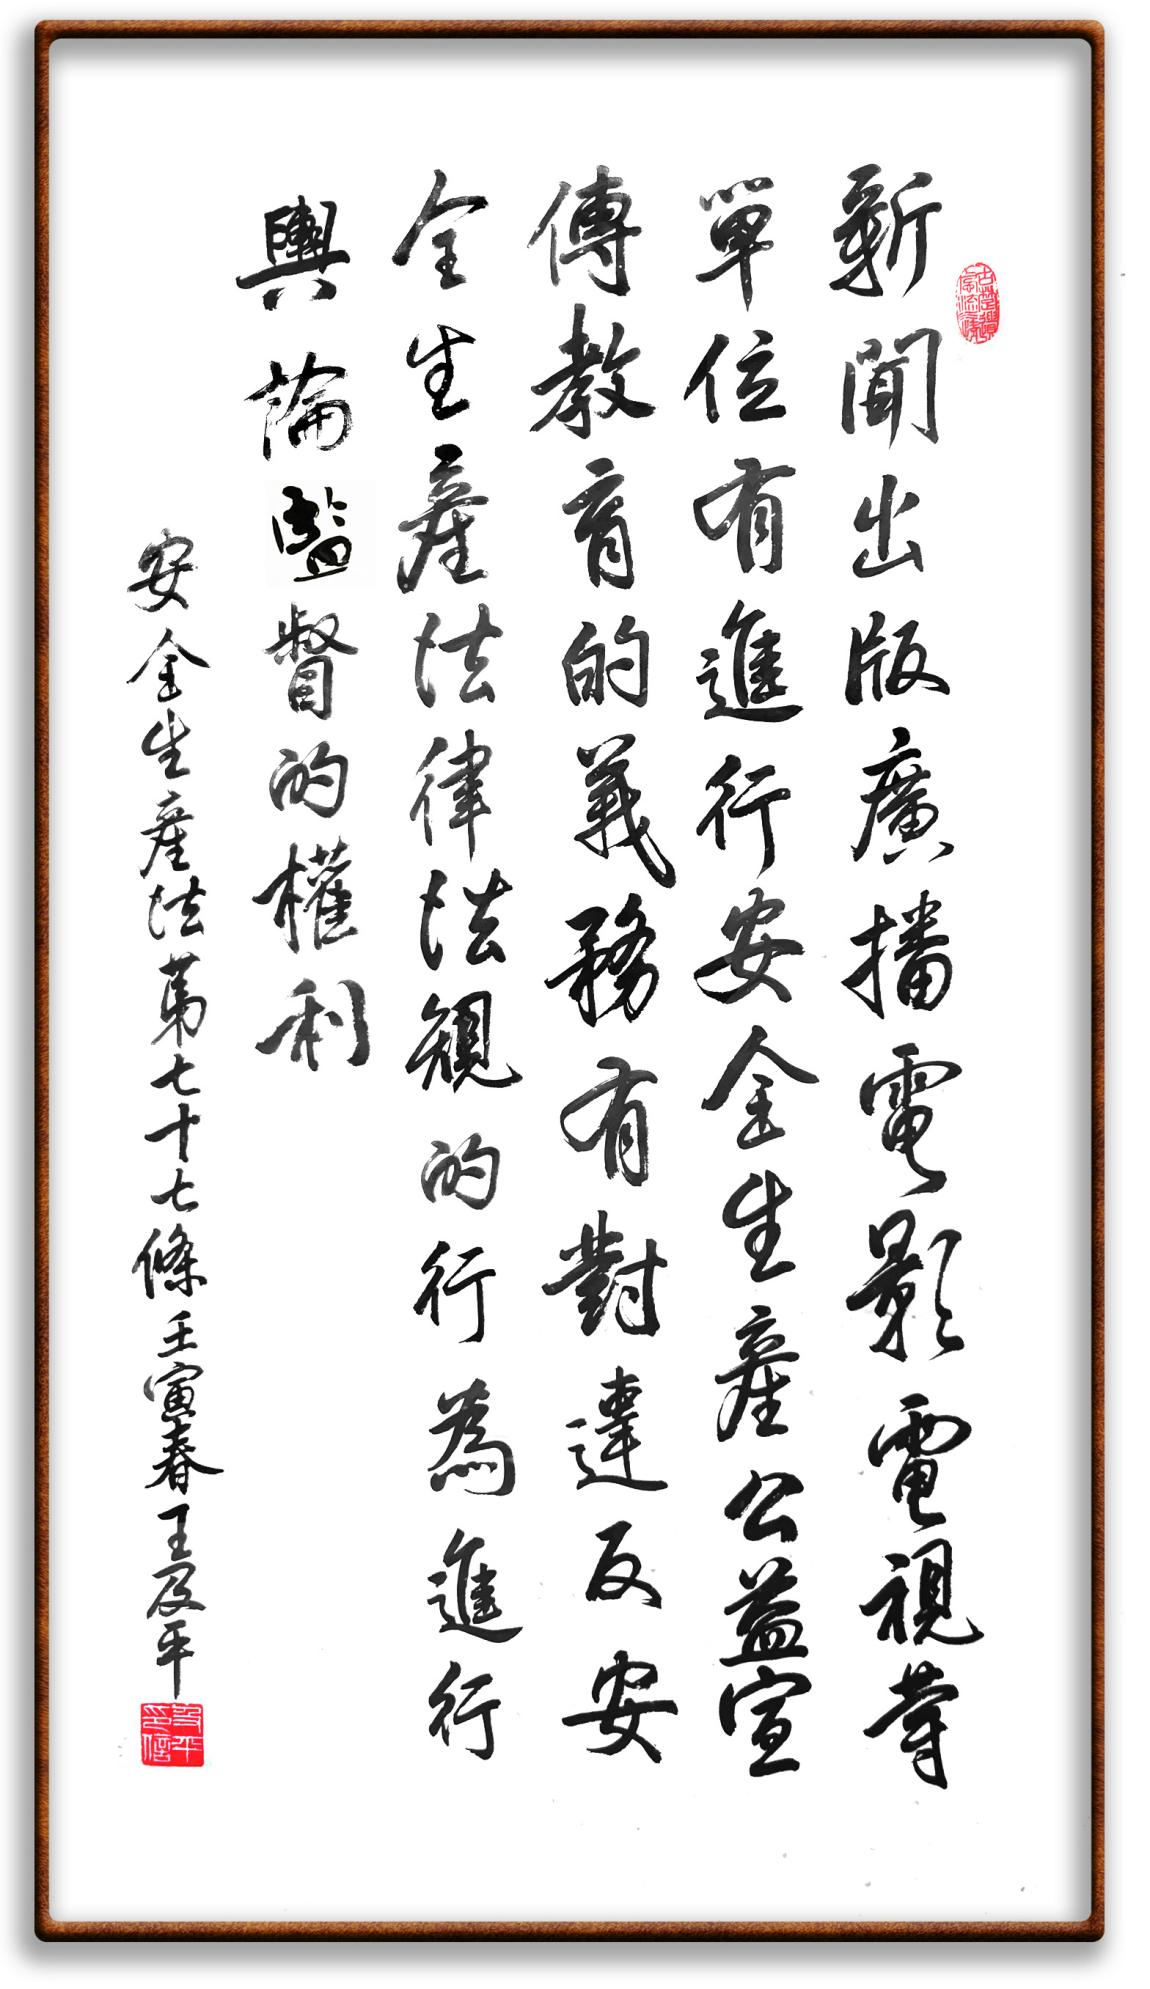 新聞出版廣播電影電視等
單位有進行安全生產公益宣
傳教育的義務有對違反安
全生產法律法規的行為進行
輿論監督的權利
安全生產法第七十七條壬寅春王及平
及平印信